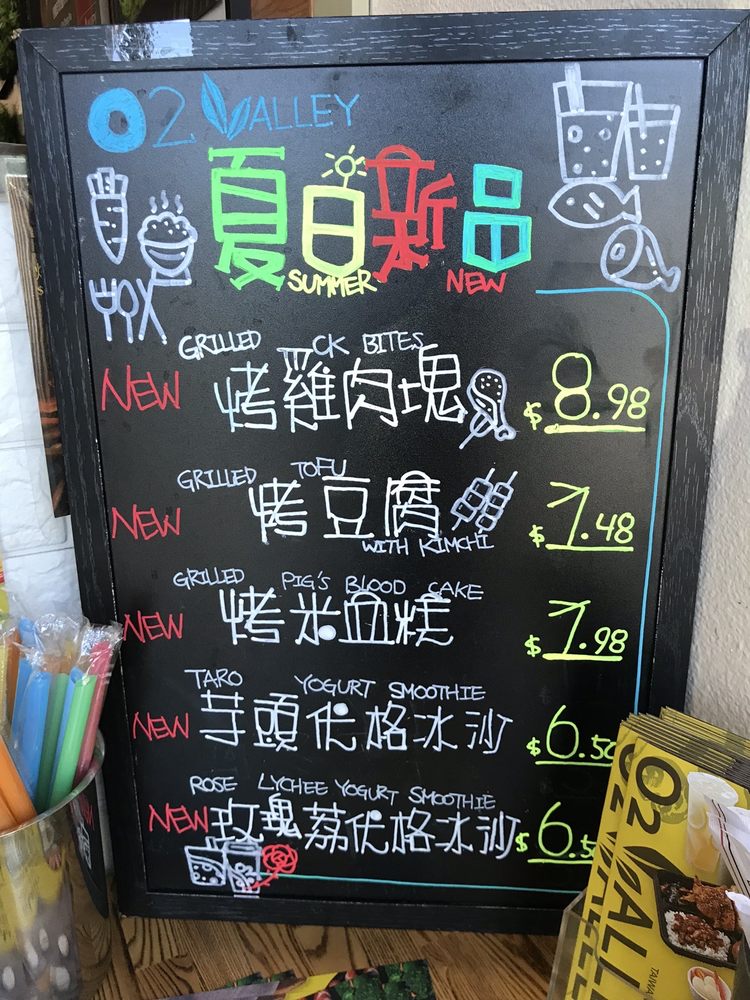 O2 VALLEY
夏日新品
SUMMER NEW
GRILLED CK BITES
NEW 烤雞肉塊 $8.98
GRILLED TOFU
NEW 烤豆腐 $7.48
WITH KIMCHI
GRILLED PIG'S BLOOD CAKE
NEW 烤米血糕 $7.98
TARO YOGURT SMOOTHIE
NEW 芋頭优格冰沙 $6.50
ROSE LYCHEE YOGURT SMOOTHIE
NEW 玫瑰荔优格冰沙 $6.5
O2 VALLE
TAIWA